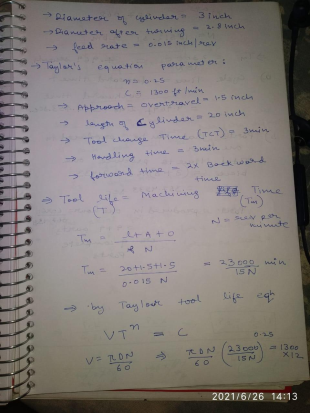 → Diameter of cylinder = 3 inch
→ Diameter after turning = 2.8 inch
→ feed rate = 0.015 inch/rev
→ Taylor's equation parameter:
n = 0.25
C = 1300 ft/min
→ Approach = overtravel = 1.5 inch
→ length of Cylinder = 20 inch
→ Tool change Time (TCT) = 3min
→ Handling time = 3min
→ forward time = 2x Backward
time
⇒ Tool life = Machining Time
(T) (Tm)
N = rev per
minute
Tm = l+A+O
N
Tm = 20+1.5+1.5 = 23000 min
0.015 N 15N
→ by Taylor tool life eqn
VT^n = C
V = πDN ⇒ πDN (23000)^0.25 = 1300
60 60 15N ×12
2021/6/26 14:13